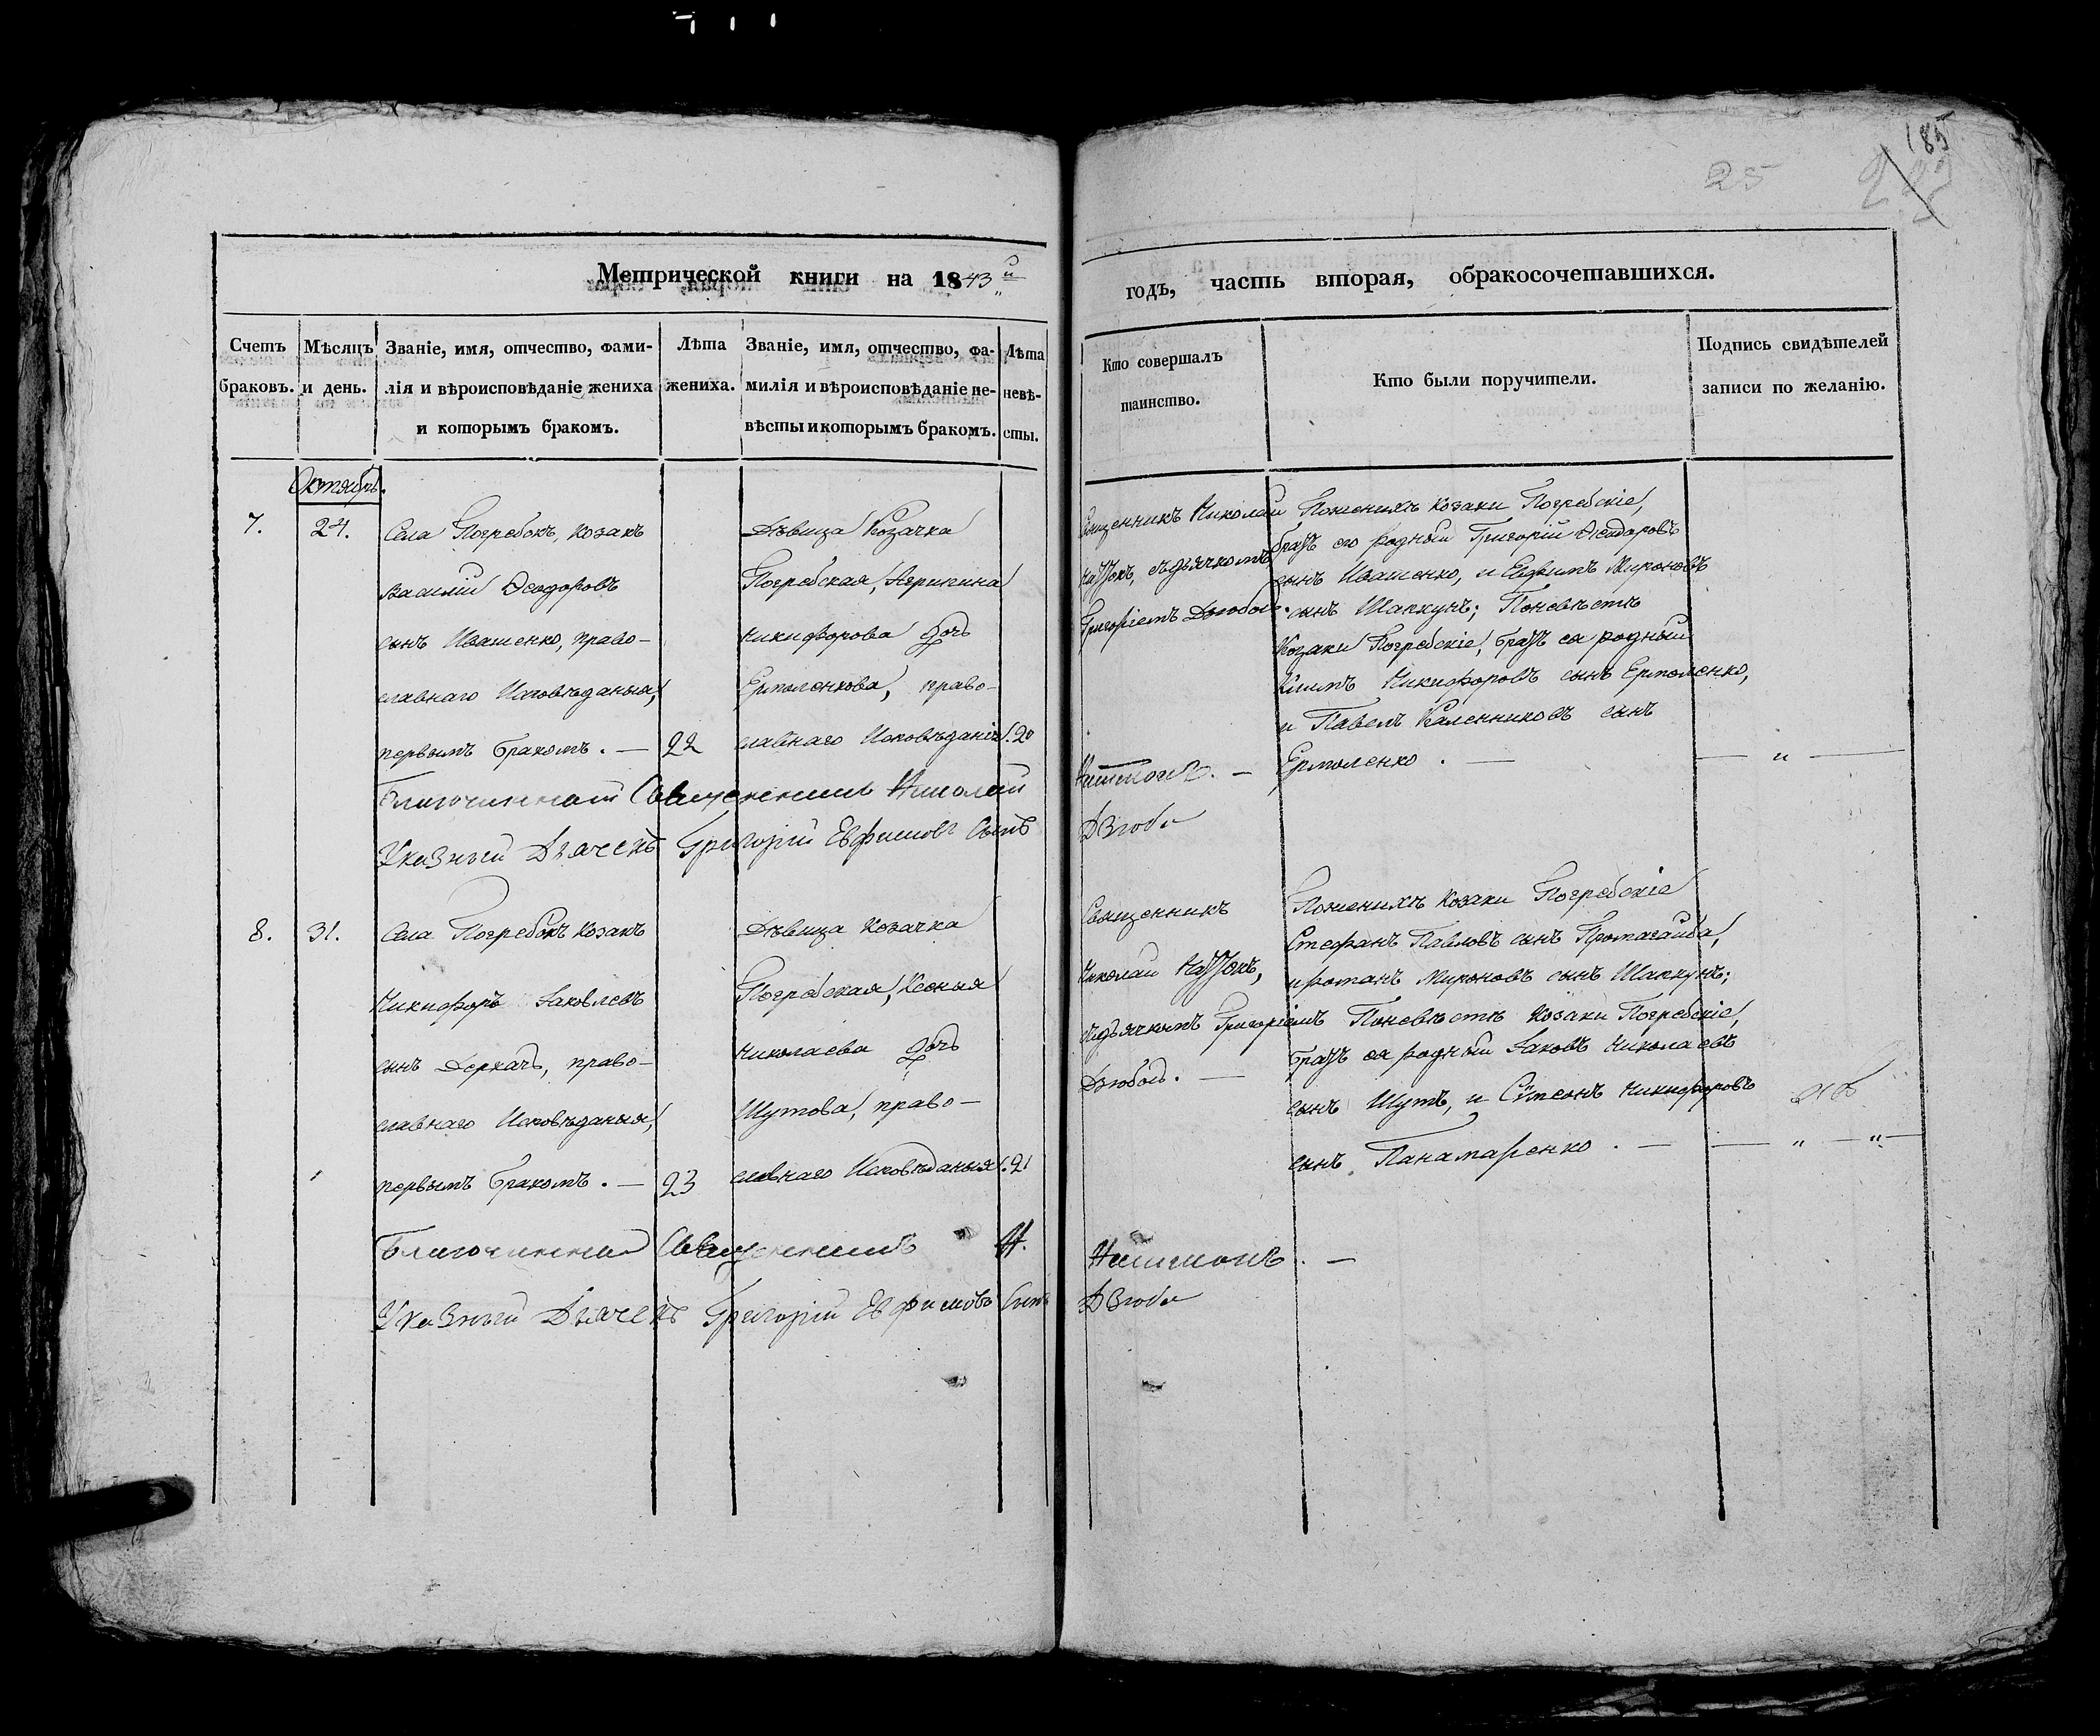 185
25
Метрической книги на 1843й
годъ, часть вторая, обракосочетавшихся.
Счетъ браковъ.
Мѣсяцъ и день.
Званіе, имя, отчество, фами-
лія и вѣроисповѣданіе жениха
и которымъ бракомъ.
Лѣта
жениха.
Званіе, имя, отчество, фа-
милія и вѣроисповѣданіе не-
вѣсты и которымъ бракомъ.
Лѣта
невѣ-
сты.
Кто совершалъ
таинство.
Кто были поручители.
Подпись свидѣтелей
записи по желанію.
Октябрь.
7.
24.
Села Погребокъ, козакъ
Василій Ѳеодоровъ
сынъ Ивашенко, право-
славнаго Исповѣданья,
первымъ бракомъ. —
22
Дѣвица Козачка
Погребская, Агрипина
Никифорова дочь
Ермоленкова, право-
славнаго Исповѣданія
20
Священникъ Николай
съ дьячкомъ
Григоріемъ Дзюбою.
По женихѣ козаки Погребскіе,
братъ его родный Григорій Ѳеодоровъ
сынъ Ивашенко, и Евфимъ Мироновъ
сынъ Шапкунъ; По невѣстѣ
Козаки Погребскіе, братъ ея родный
Никифоровъ сынъ Ермоленко,
и Павелъ Каленниковъ сынъ
Ермоленко. —
— „ —
Благочинный Священникъ Николай
Указный Дьячекъ Григорій Евфимовъ Сынъ
Дзюба
8.
31.
Села Погребокъ козакъ
Никифоръ Яковлевъ
сынъ Деркачъ, право-
славнаго Исповѣданья,
первымъ бракомъ. —
23
Дѣвица козачка
Погребская, Ксенья
Николаева дочь
Шутова, право-
славнаго Исповѣданья
21
Священникъ
Николай
съ дьячкомъ Григоріемъ
Дзюбою. —
По женихѣ козаки Погребскіе
Стефанъ Павловъ сынъ Протачайба,
и Романъ Мироновъ сынъ Шапкунъ;
По невѣстѣ Козаки Погребскіе,
братъ ея родный Яковъ Николаевъ
сынъ Шутъ, и Сѵмеонъ Никифоровъ
сынъ Панамаренко. —
— „ — „ —
Благочинный Священникъ Н.
Указный Дьячекъ Григорій Евфимовъ Сынъ
Дзюба